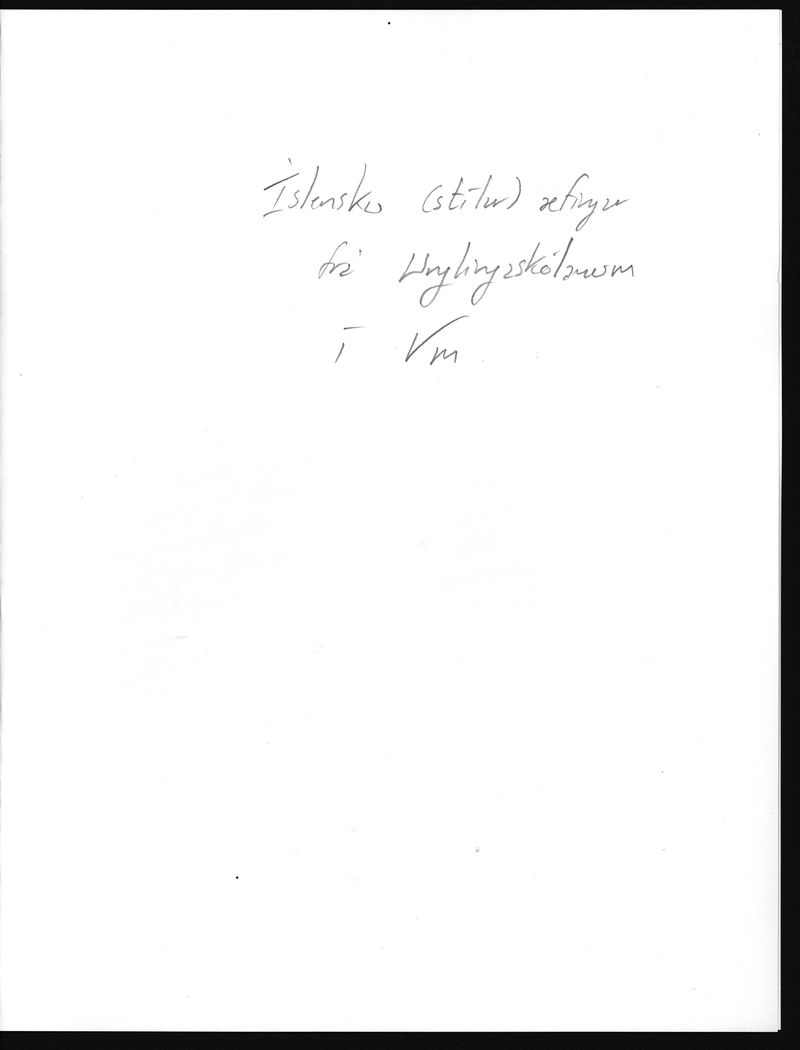 Íslensku (stílar) æfingar
frá Unglingaskólanum
í Vm